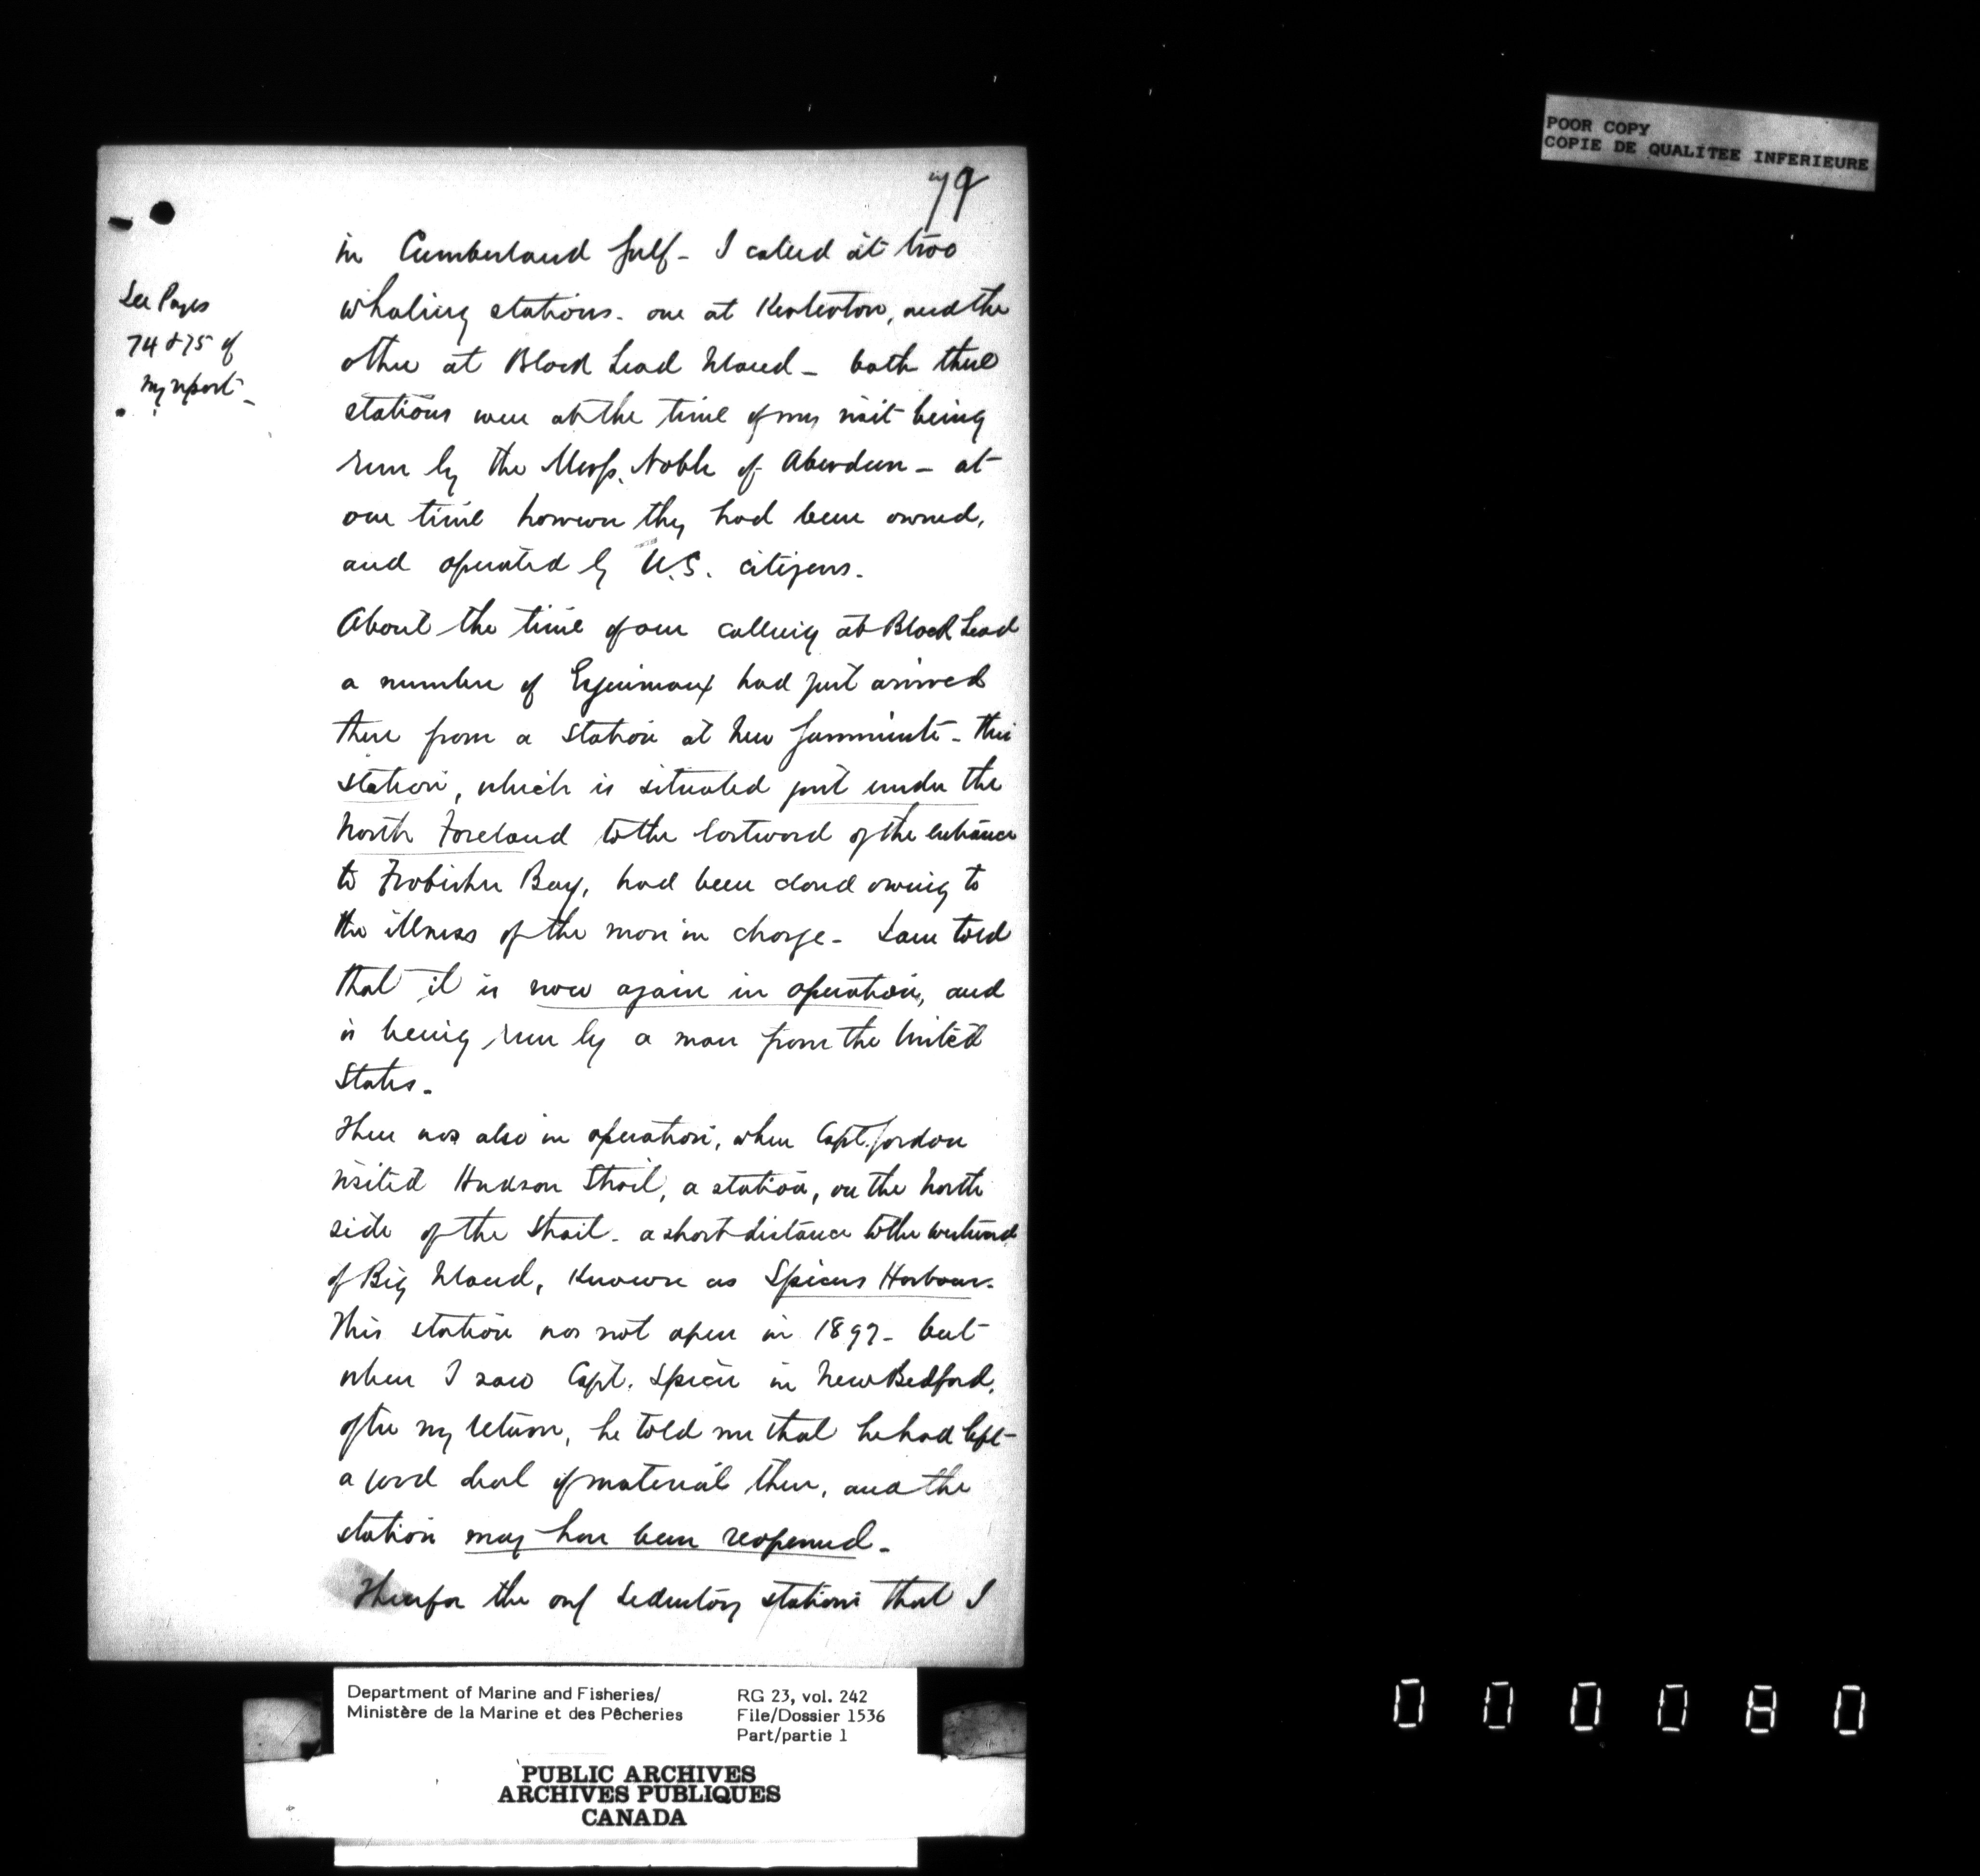 POOR COPY
COPIE DE QUALITEE INFERIEURE
79
See Pages
74 & 75 of
my report -
in Cumberland Gulf - I called at two
whaling stations. one at Kekerton, and the
other at Black Lead Island - both these
stations were at the time of my visit being
run by the Messrs. Noble of Aberdeen - at
one time however they had been owned,
and operated by U.S. citizens.
About the time of our calling at Black Lead
a number of Esquimaux had just arrived
there from a station at New Gummiute - this
station, which is situated just under the
North Foreland to the Eastward of the entrance
to Frobisher Bay, had been closed owing to
the illness of the man in charge - I am told
that it is now again in operation, and
is being run by a man from the United
States -
There was also in operation, when Capt. Gordon
visited Hudson Strait, a station, on the North
side of the Strait - a short distance to the westward
of Big Island, known as Spicers Harbour.
This station was not open in 1897 - but
when I saw Capt. Spicer in New Bedford,
after my return, he told me that he had left
a good deal of material there, and the
station may have been reopened -
Therefor the only Sedentary stations that I
Department of Marine and Fisheries/
Ministère de la Marine et des Pêcheries
RG 23, vol. 242
File/Dossier 1536
Part/partie 1
PUBLIC ARCHIVES
ARCHIVES PUBLIQUES
CANADA
000080